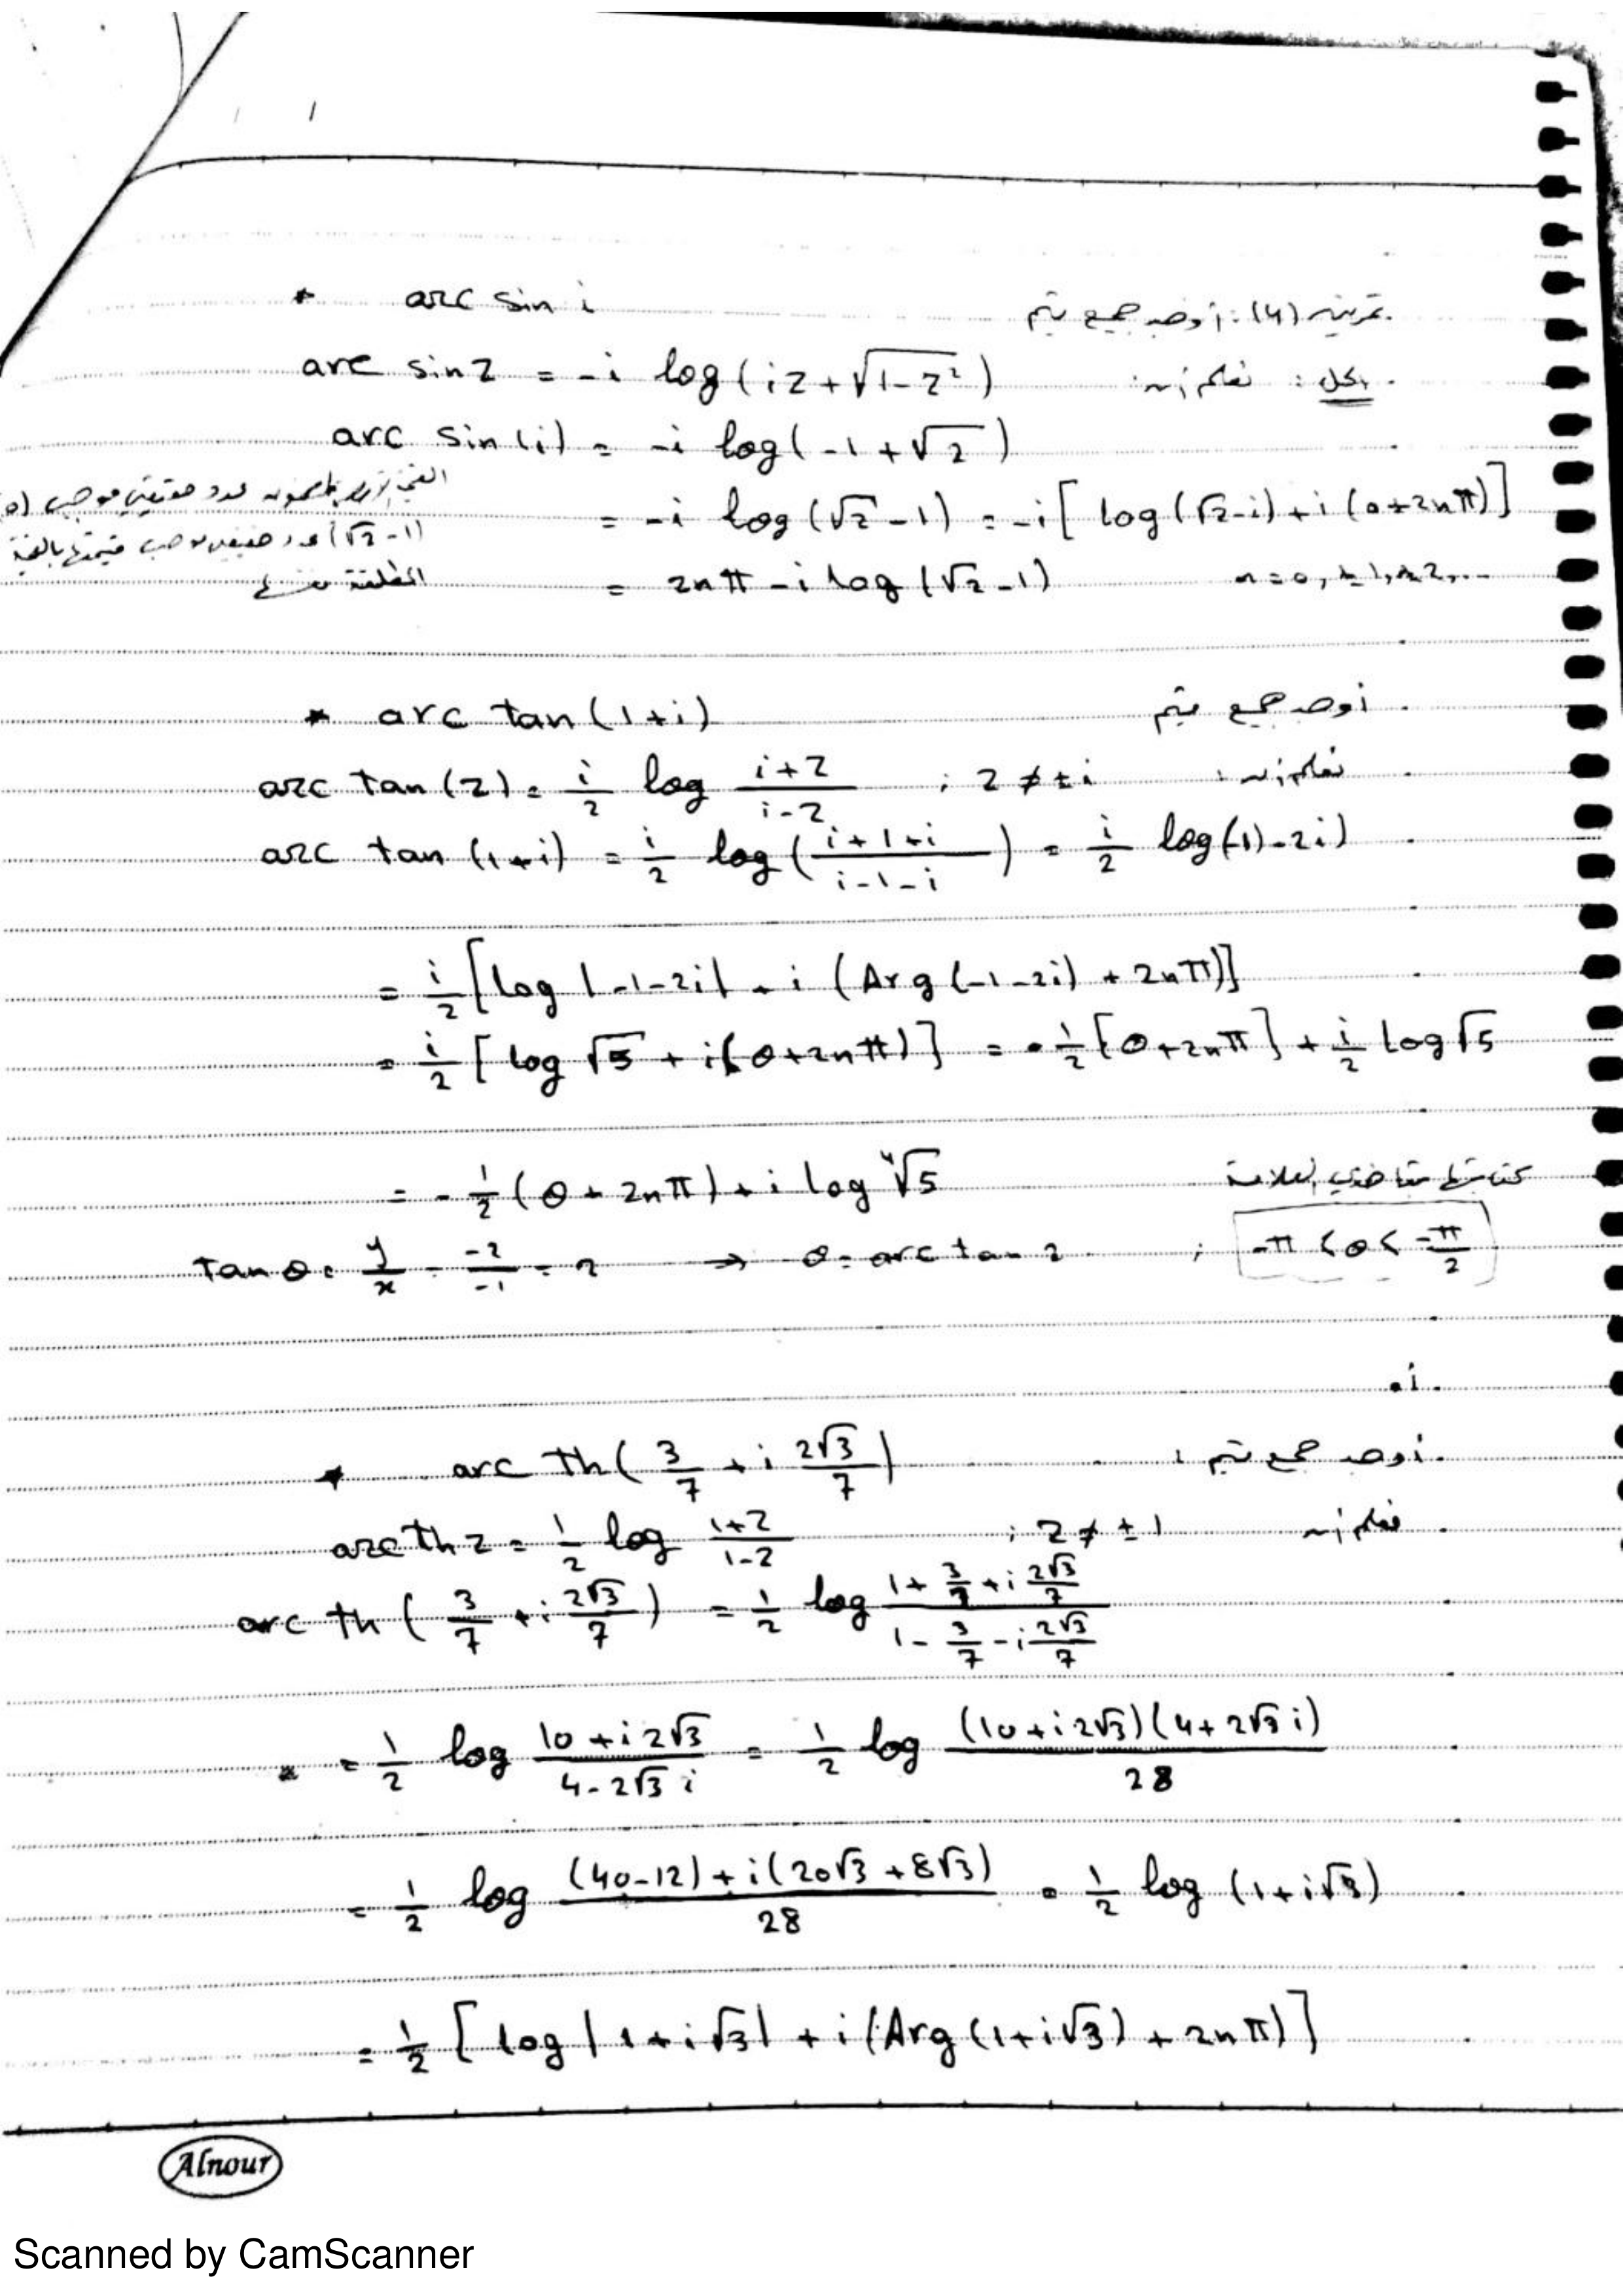 تمرين (4): أوجد جميع قيم * arc sin i
الحل: نعلم أن: arc sin z = -i log(iz + √(1-z²))
arc sin(i) = -i log(-1 + √2)
= -i log(√2 - 1) = -i[log(√2-i) + i(0+2nπ)]
عدد حقيقي موجب
(√2-1) عدد حقيقي موجب قيمته بالقيمة
المطلقة
= 2nπ - i log(√2-1) n=0, ±1, ±2, ...
أوجد جميع قيم * arc tan(1+i)
نعلم أن: arc tan(z) = i/2 log (i+z)/(i-z) ; z ≠ ±i
arc tan(1+i) = i/2 log((i+1+i)/(i-1-i)) = i/2 log(-1)-2i)
= i/2 [log |-1-2i| + i (Arg(-1-2i) + 2nπ)]
= i/2 [log √5 + i(θ+2nπ)] = -1/2 [θ+2nπ] + i/2 log √5
= -1/2 (θ + 2nπ) + i log ⁴√5
tan θ = y/x = -2/-1 = 2 → θ = arc tan 2 ; -π < θ < -π/2
أوجد جميع قيم : * arc th(3/7 + i 2√3/7)
نعلم أن arc th z = 1/2 log (1+z)/(1-z) ; z ≠ ±1
arc th (3/7 + i 2√3/7) = 1/2 log (1 + 3/7 + i 2√3/7)/(1 - 3/7 - i 2√3/7)
= 1/2 log (10 + i2√3)/(4 - 2√3 i) = 1/2 log (10 + i2√3)(4 + 2√3 i)/28
= 1/2 log ((40-12) + i(20√3 + 8√3))/28 = 1/2 log (1 + i√3)
= 1/2 [log |1 + i√3| + i(Arg(1+i√3) + 2nπ)]
Alnour
Scanned by CamScanner